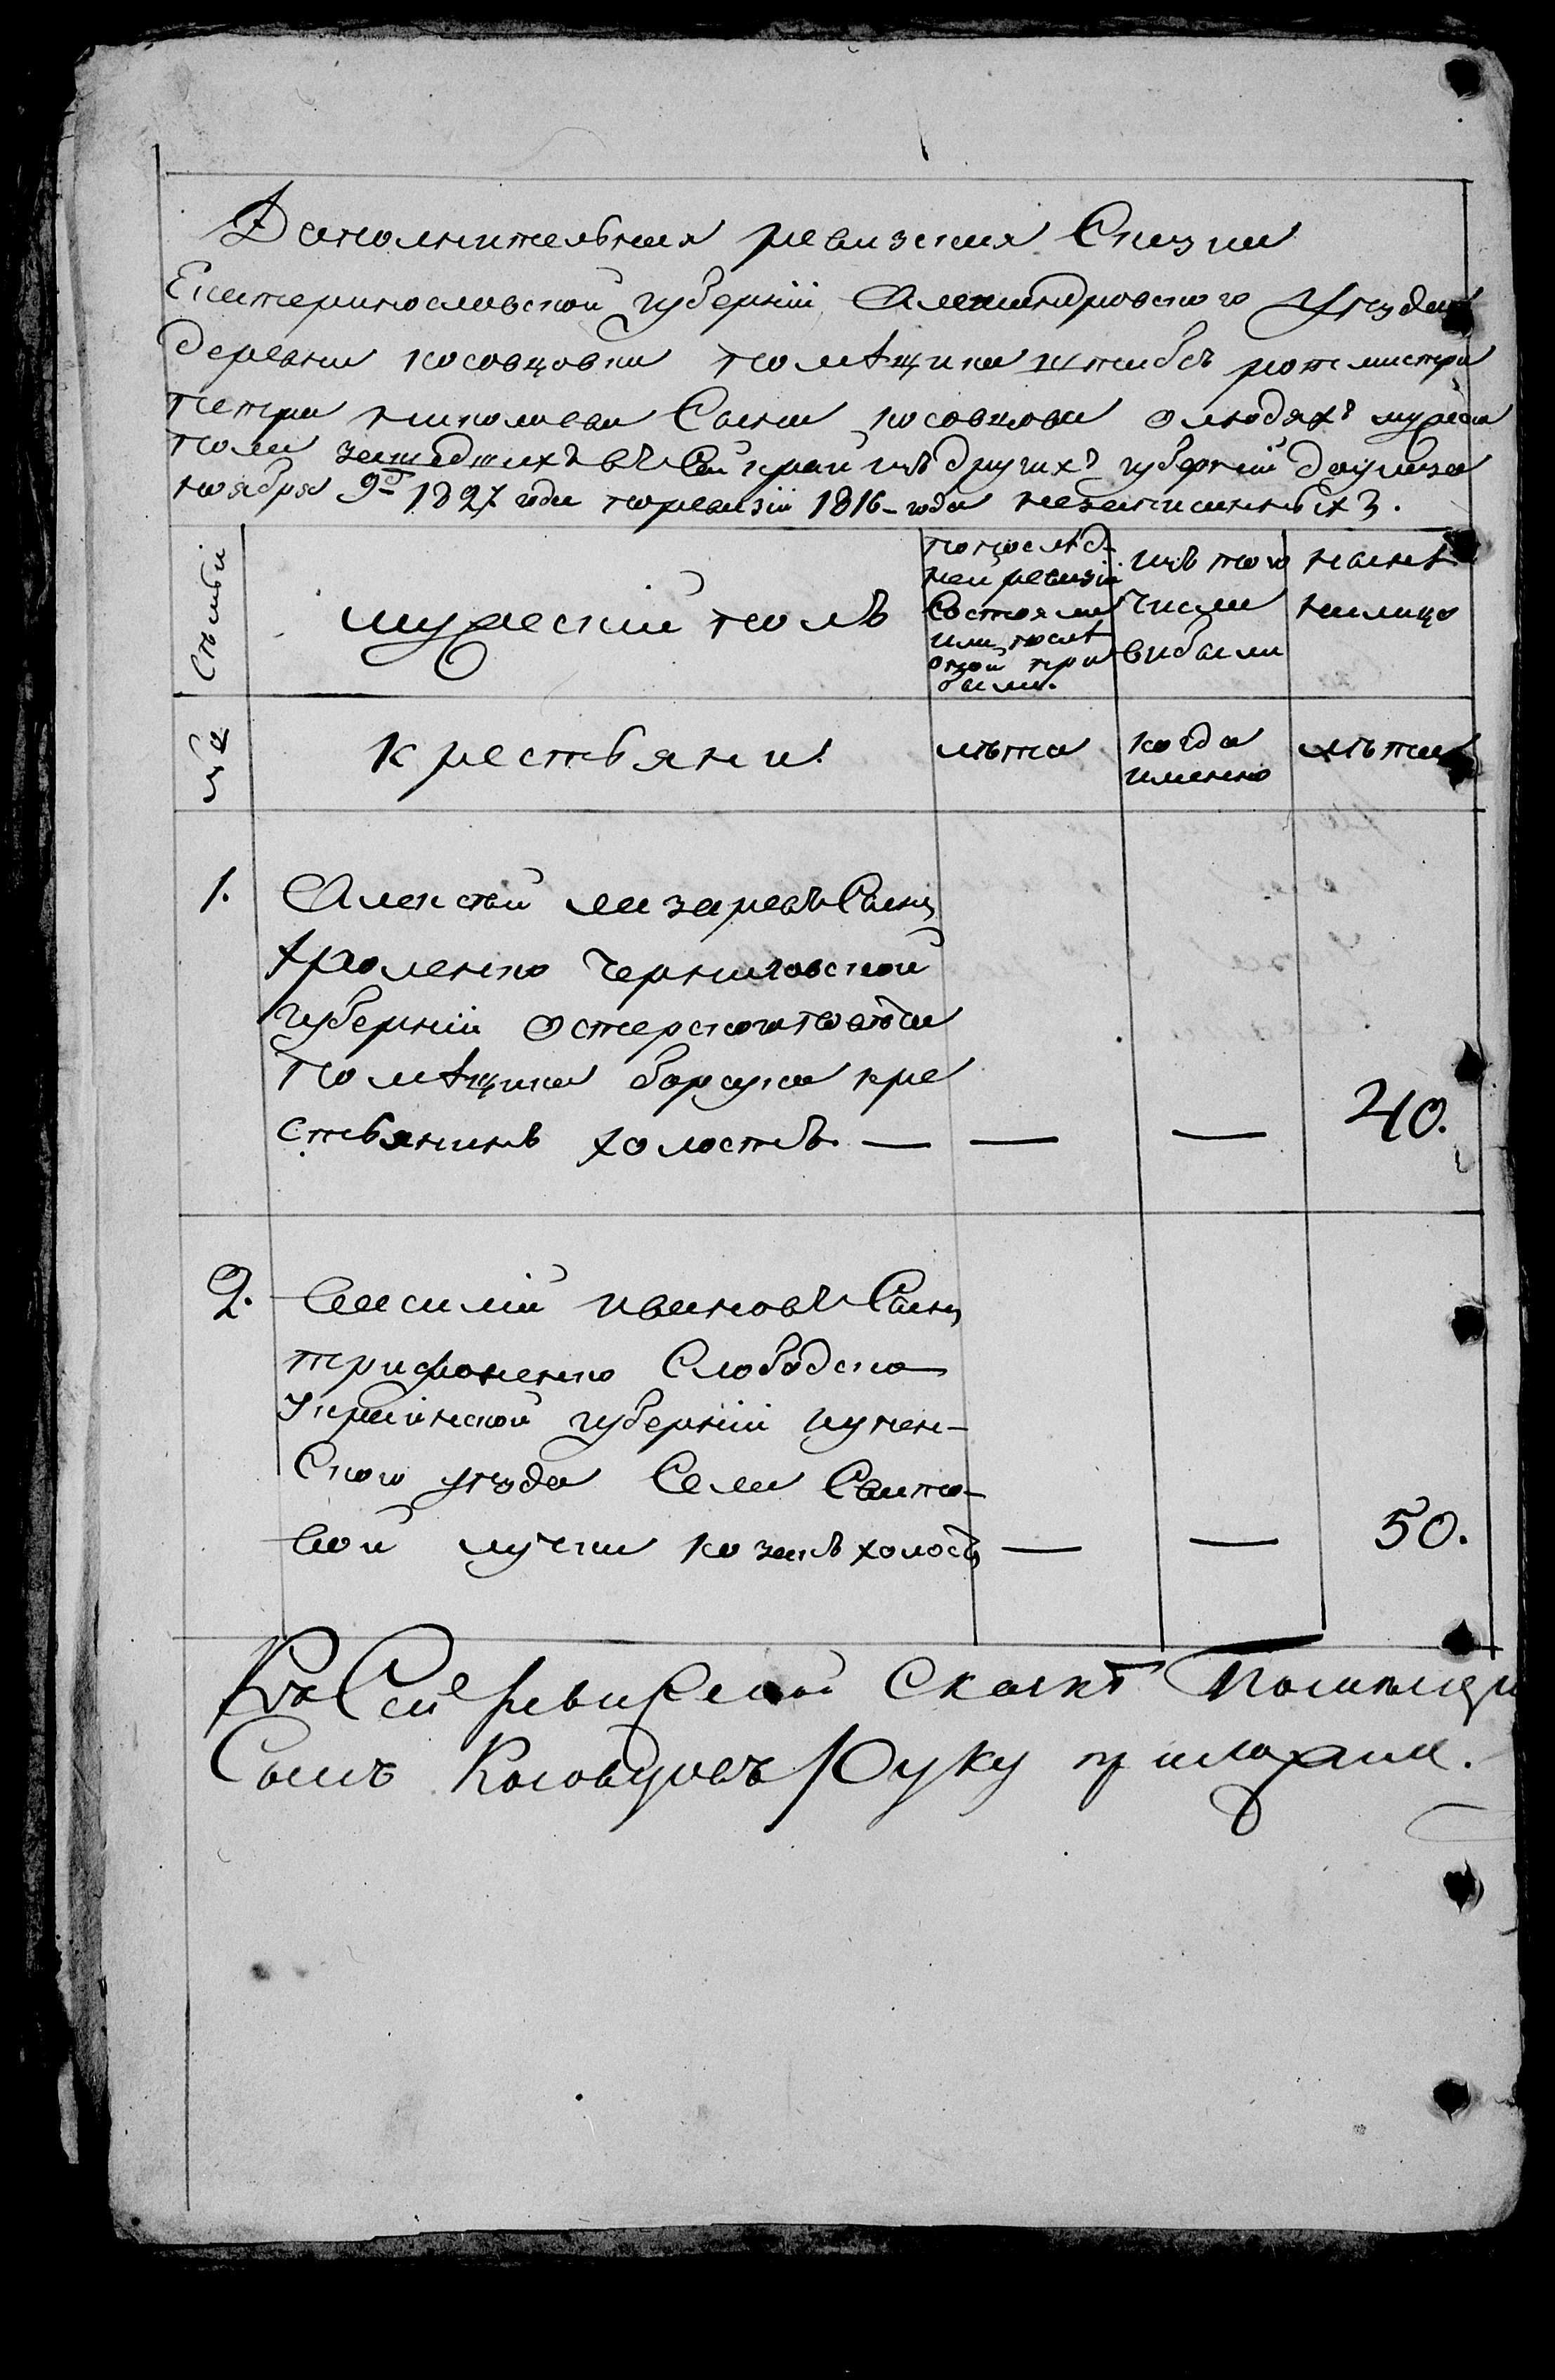 Дополнительная ревизская Сказка
Екатеринославской губернiи Александровского Уезда
деревни косовцовки помѣщика штабсъ ротмистра
петра николаева Сына косовцова олюдяхъ мужеска
пола зашедшихъ въ Сей край изъ другихъ губернiй доуказа
ноября 9д 1827 года поревизiи 1816-года незаписанныхъ.
Семьи
мужескiй полъ
попослѣд-
ней ревизiи
Состояло
или послѣ
оной при
было.
изъ того
числа
выбыли
нынѣ
налицо
крестьяни.
лѣта
когда
именно
лѣта
1.
Алексѣй лазаревъ Сынъ
хроленко Черниговской
губернiи Остерского повѣта
помѣщика барсука кре
стьянинъ холостъ — — — 40.
2.
Василiй ивановъ Сынъ
трифоненко Слободско
Украинской губернiи изюм-
Ского уезда Села Свято-
вой лучки козакъ холостъ — — 50.
Ко Сей ревизской Сказкѣ Помѣщик
Сынъ Косовцовъ Руку приложил.